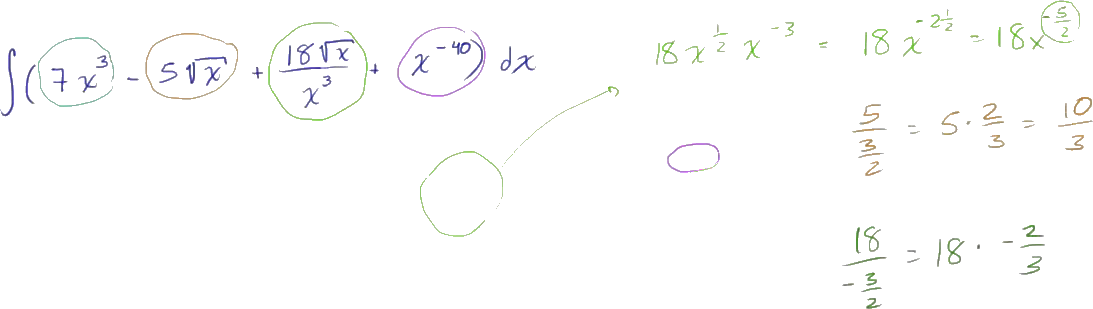 ∫(7x³ - 5√x + 18√x/x³ + x⁻⁴⁰) dx
18x^(1/2) x⁻³ = 18x^(-2 1/2) = 18x^(-5/2)
5/(3/2) = 5 · 2/3 = 10/3
18/(-3/2) = 18 · -2/3